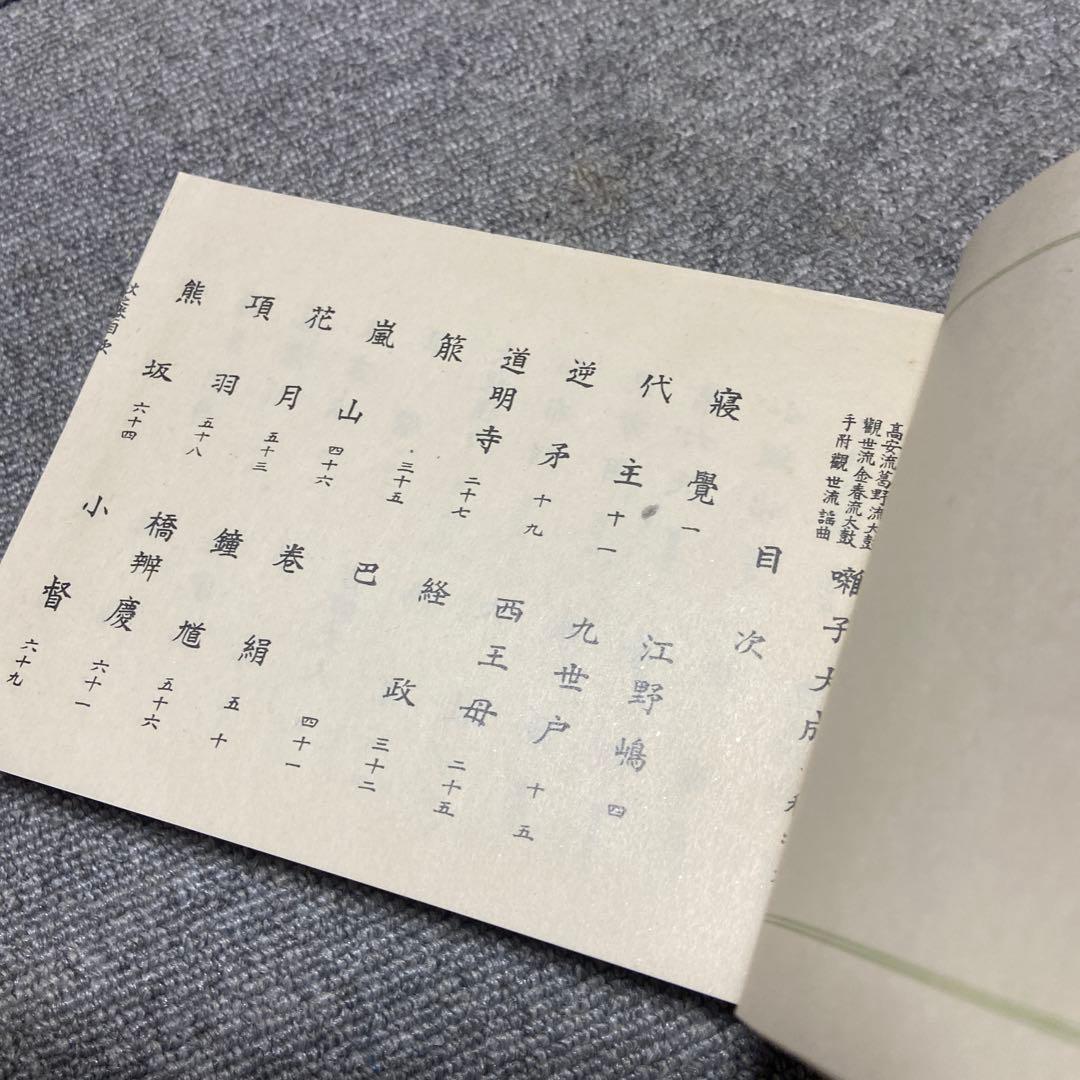 高安流葛野流大鼓
觀世流金春流太鼓
手附觀世流謡曲
囃子大成
目次
寝覺 一 江野嶋 四
代主 十一 九世戸 十五
逆矛 十九 西王母 二十五
道明寺 二十七 経政 三十二
箙 三十五 巴 四十一
嵐山 四十六 巻絹 五十
花月 五十三 鐘馗 五十六
項羽 五十八 橋辨慶 六十一
熊坂 六十四 小督 六十九